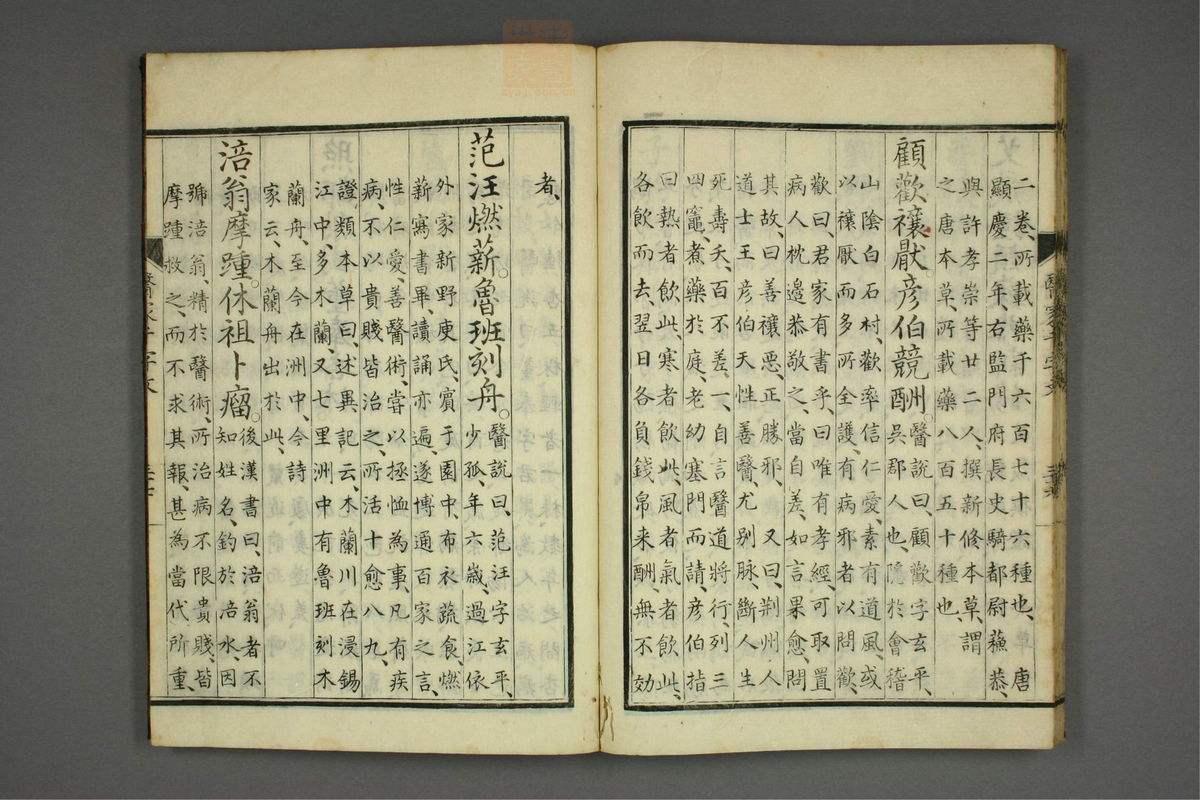 二卷、所載藥千六百七十六種也、唐
顯慶二年、右監門府長史騎都尉蘓恭、
與許孝崇等廿二人、撰新修本草、謂
之唐本草、所載藥八百五十種也、
顧歡禳厭。彦伯競酬。醫說曰、顧歡字玄平、吳郡人也、隱於會稽
山陰白石村、歡率信仁愛、素有道風、或
以禳厭而多所全護、有病邪者以問歡、
歡曰、君家有書乎、曰唯有孝經、可取置
病人枕邉恭敬之、當自差、如言果愈、問
其故、曰善禳惡、正勝邪、又曰、荆州人
道士王彦伯、天性善醫、尤别脉、斷人生
死壽夭、百不差一、自言醫道將行、列三
四竈、煮藥於庭、老幼塞門而請、彦伯指
曰、熱者飲此、寒者飲此、風者氣者飲此、
各飲而去、翌日各負錢帛来酬、無不効
者、
范汪燃薪。魯班刻舟。醫說曰、范汪字玄平、少孤、年六歲、過江依
外家新野庾氏、賓于園中、布衣蔬食、燃
薪寫書畢、讀誦亦遍、遂博通百家之言、
性仁愛、善醫術、甞以拯恤為事、凡有疾
病、不以貴賤皆治之、所活十愈八九、
證類本草曰、述異記云、木蘭川在浸錫
江中、多木蘭、又七里洲中有魯班刻木
蘭舟、至今在洲中、今詩
家云、木蘭舟出於此、
涪翁摩踵。休祖卜瘤。後漢書曰、涪翁者不知姓名、釣於涪水、因
號涪翁、精於醫術、所治病不限貴賤、皆
摩踵救之、而不求其報、甚為當代所重、
醫家千字文